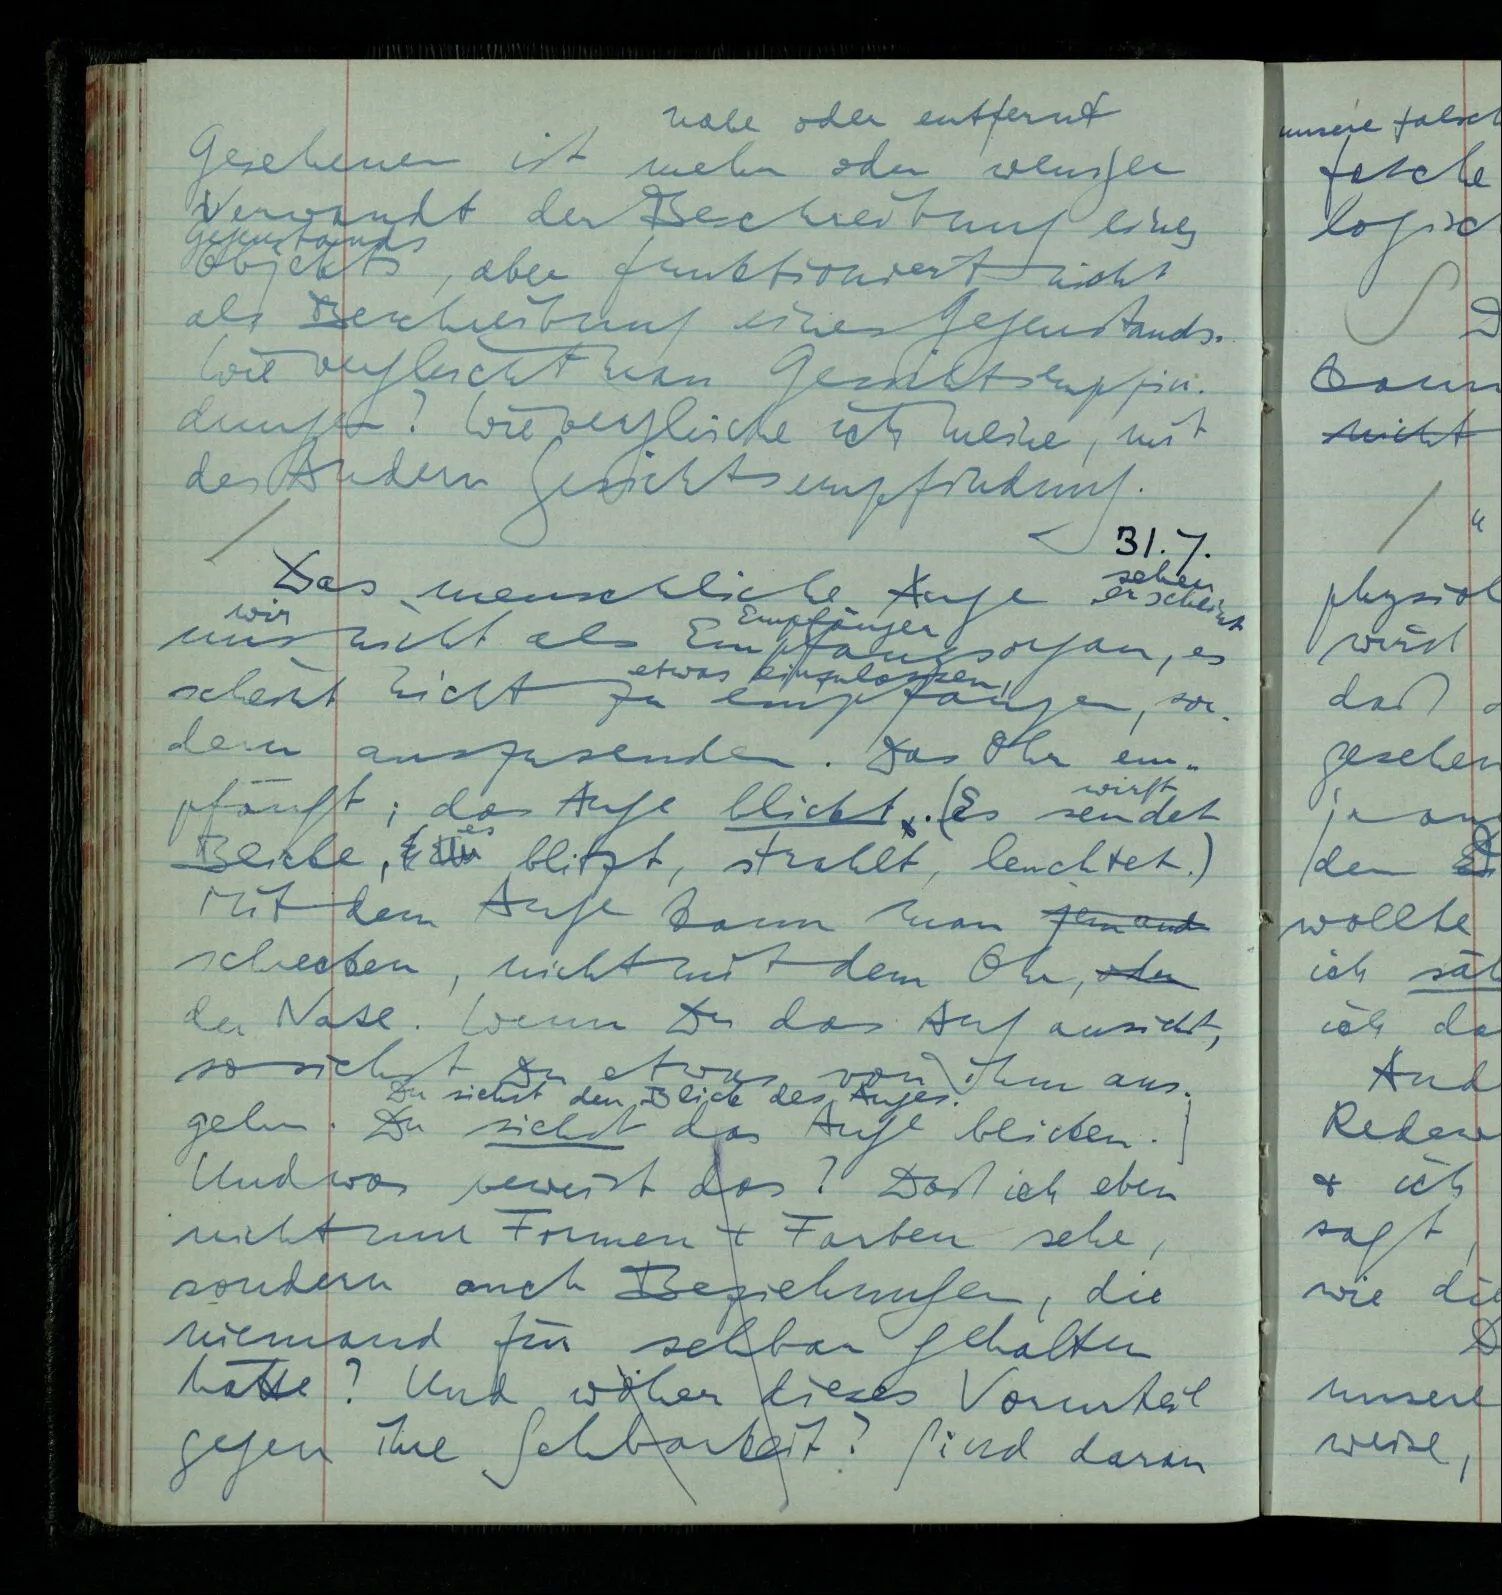 nahe oder entfernt
Gesehenen ist mehr oder weniger
Verwandt der Beschreibung eines
Gegenstands
Objekts, aber funktioniert nicht
als Beschreibung eines Gegenstands.
Wie vergleicht man Gesichtsempfin-
dungen? Wie vergleiche ich meine, mit
des Andern Gesichtsempfindung.
/
31.7.
Das menschliche Auge sehen
erscheint
wir
uns nicht als Empfänger
Empfangsorgan, es
scheint nicht etwas einzulassen,
zu empfangen, son-
dern auszusenden. Das Ohr em-
pfängt; das Auge blickt. (Es wirft
sendet
Blicke, es blitzt, strahlt, leuchtet.)
Mit dem Auge kann man jemand
schrecken, nicht mit dem Ohr, oder
der Nase. Wenn Du das Aug ansiehst,
so siehst Du etwas von ihm aus-
Du siehst den Blick des Auges.
gehn. Du siehst das Auge blicken.
Und was beweist das? Daß ich eben
nicht nur Formen + Farben sehe,
sondern auch Beziehungen, die
niemand für sehbar gehalten
hätte? Und woher dieses Vorurteil
gegen ihre Sehbarkeit? Sind daran
unsere falsch
falsche
logisc
D
kann
nicht
/ "
physiol
wird
daß
gesehen
ja
den
wollte
ich
ich da
And
Redew
+ ich
sagt,
wie die
D
unsere
weise,